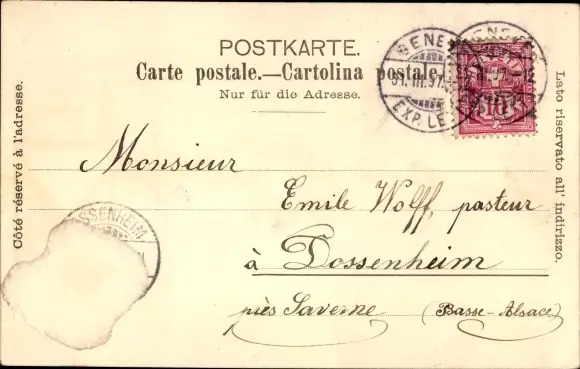 POSTKARTE.
Carte postale.—Cartolina postale.
Nur für die Adresse.
Côté réservé à l'adresse.
Lato riservato all' indirizzo.
GENE
31.III.97.
EXP. LE
10
Monsieur
Emile Wolff, pasteur
à Dossenheim
près Saverne (Basse-Alsace)
SSENHEIM